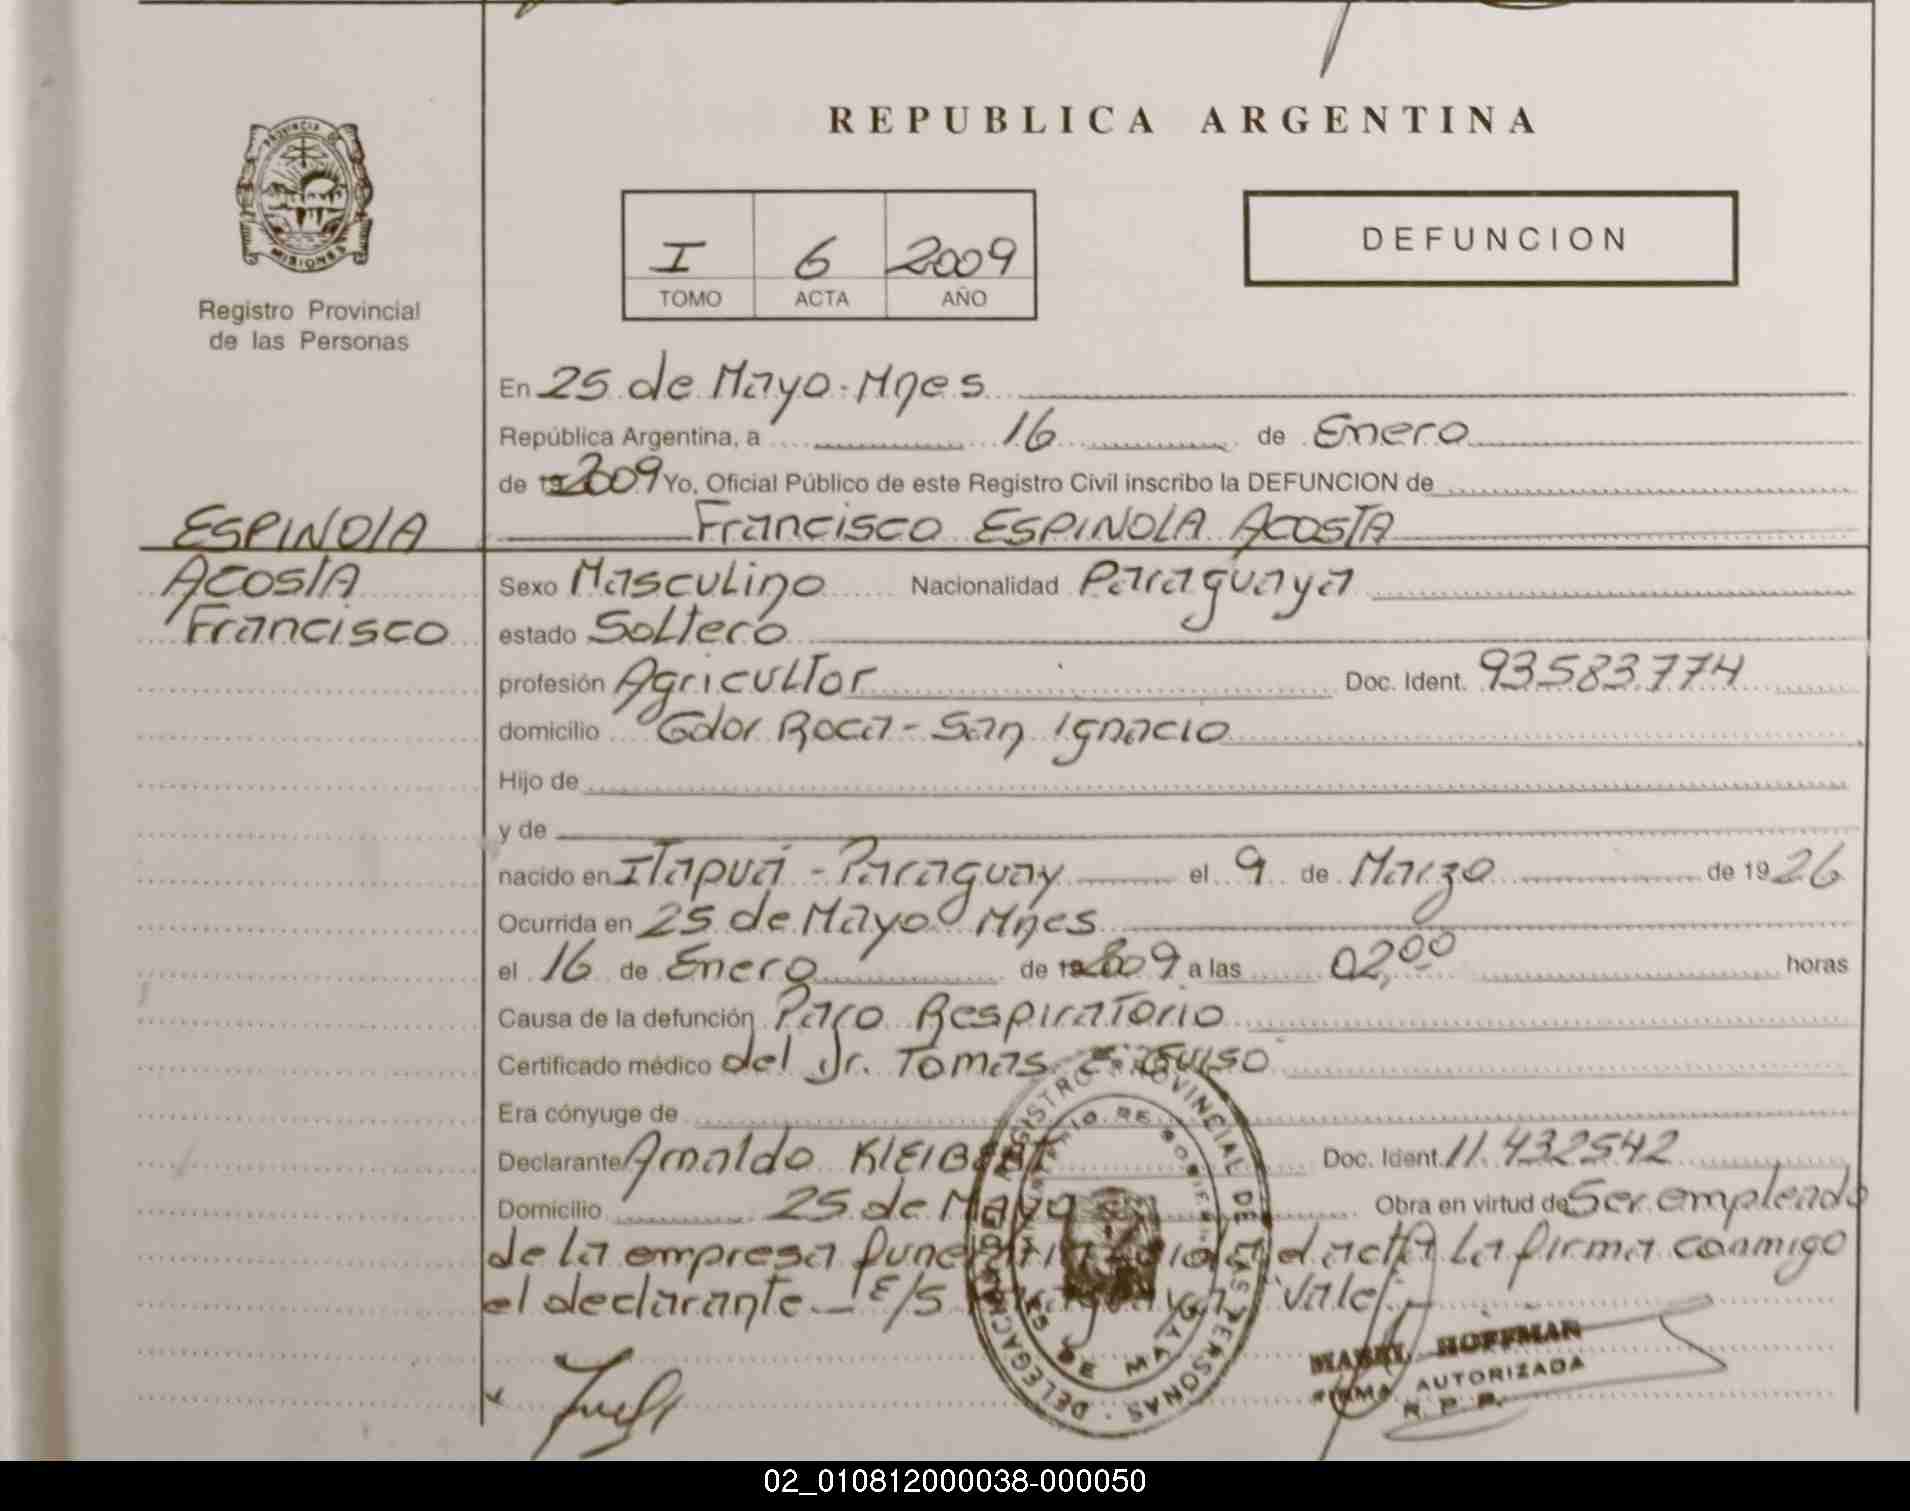 REPUBLICA ARGENTINA
PROVINCIA DE
MISIONES
Registro Provincial
de las Personas
I 6 2009
TOMO ACTA AÑO
DEFUNCION
En 25 de Mayo - Mnes
República Argentina, a 16 de Enero
de 2009 Yo, Oficial Público de este Registro Civil inscribo la DEFUNCION de
Francisco ESPINOLA ACOSTA
ESPINOLA
ACOSTA
Francisco
Sexo Masculino Nacionalidad Paraguaya
estado Soltero
profesión Agricultor Doc. Ident. 93.583.774
domicilio Gdor Roca - San Ignacio
Hijo de
y de
nacido en Itapuá - Paraguay el 9 de Marzo de 1926
Ocurrida en 25 de Mayo Mnes
el 16 de Enero de 2009 a las 02,00 horas
Causa de la defunción Paro Respiratorio
Certificado médico del Dr. Tomas E.
Era cónyuge de
Declarante Arnaldo KLEIBERT Doc. Ident. 11.432542
Domicilio 25 de Mayo Obra en virtud de Ser empleado
de la empresa funeraria Leida el acta la firma conmigo
el declarante - E/S Vale
REGISTRO PROVINCIAL DE LAS PERSONAS - DELEGACION
25 DE MAYO
MABEL HOFFMAN
FIRMA AUTORIZADA
R. P. P.
02_010812000038-000050